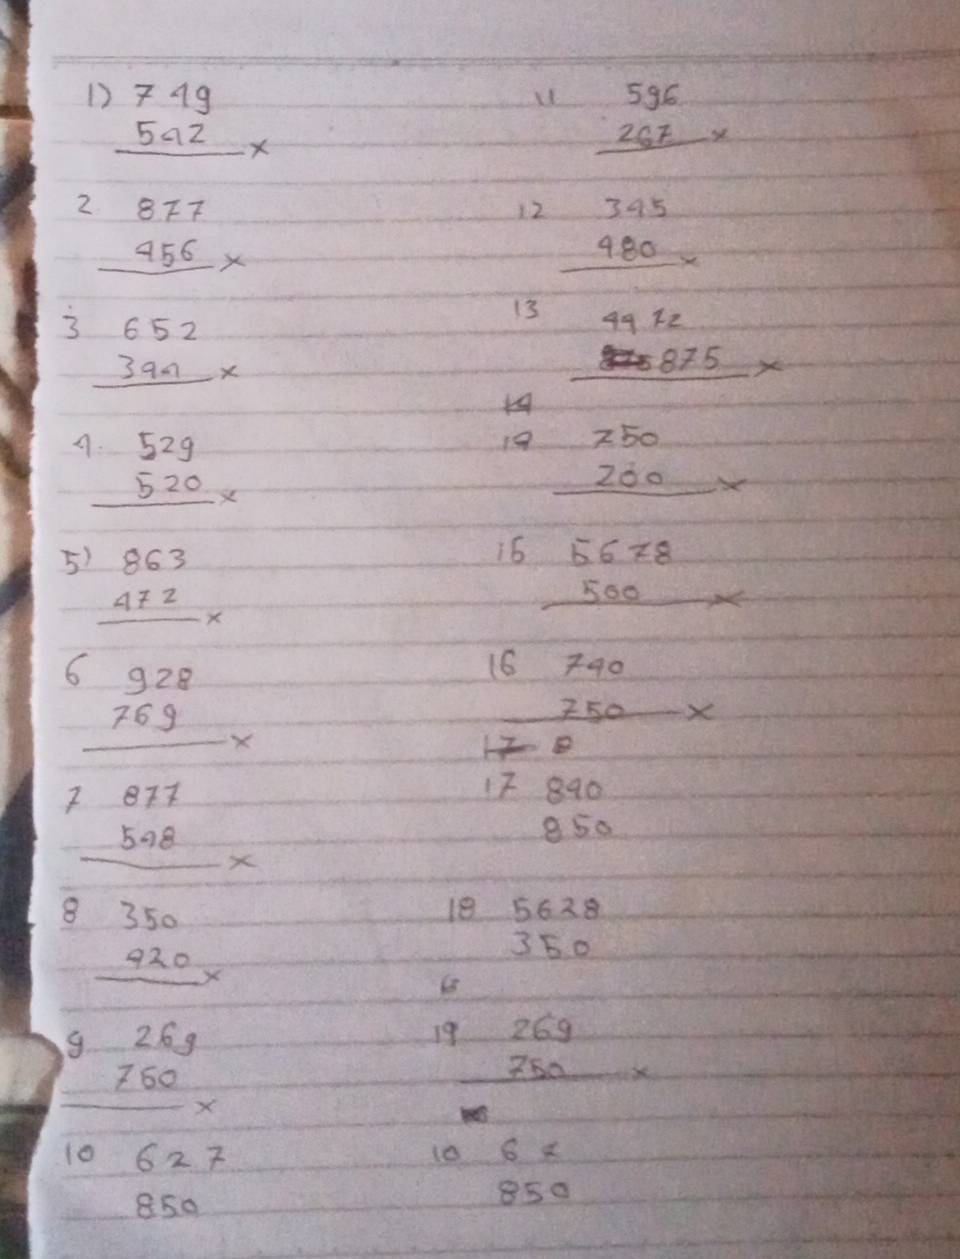 1) 749
542 ×
2. 877
456 ×
3 652
344 ×
4. 529
520 ×
5) 863
472 ×
6 928
769 ×
7 877
548 ×
8 350
420 ×
9 269
750 ×
10 627
850
11 596
267 ×
12 345
480 ×
13 4472
875 ×
14
14 750
200 ×
15 5678
500 ×
16 740
750 ×
17 8
17 840
850
18 5628
350
19 269
750 ×
10 67
850